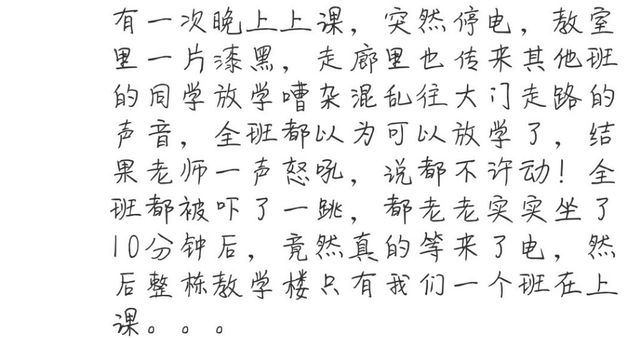 有一次晚上上课，突然停电，教室
里一片漆黑，走廊里也传来其他班
的同学放学嘈杂混乱往大门走路的
声音，全班都以为可以放学了，结
果老师一声怒吼，说都不许动！全
班都被吓了一跳，都老老实实坐了
10分钟后，竟然真的等来了电，然
后整栋教学楼只有我们一个班在上
课。。。